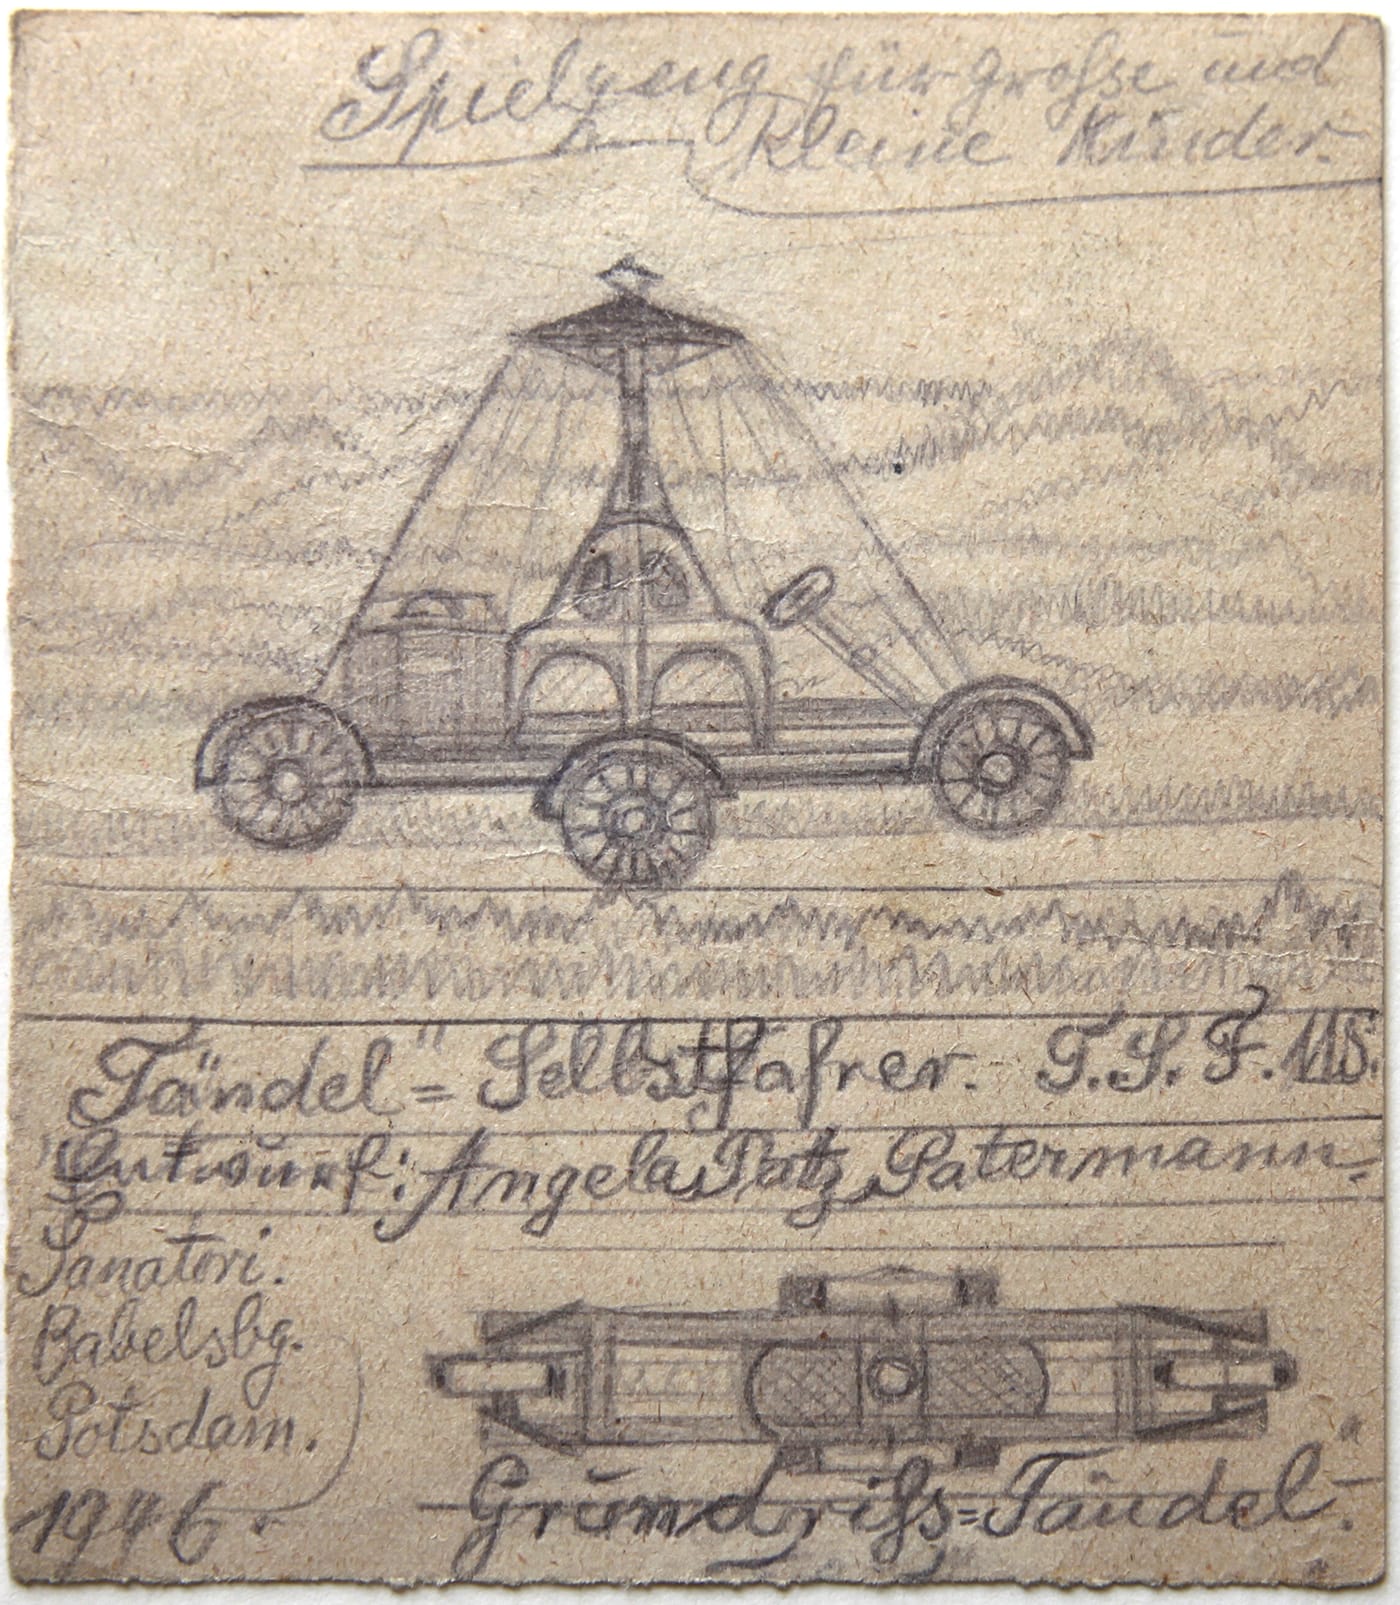 Spielzeug für Grosse und
kleine Kinder.
Tändel" = Selbstfahrer. T.S.F. 115.
Entwurf: Angela, Tatz, Patermann
Sanatori.
Babelsbg.
Potsdam.
1946.
Grundriss = Tändel".